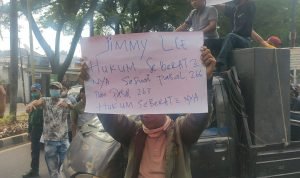 JIMMY LIE
HUKUM SEBERAT2
NYA SESUAI PASAL 266
DAN PASAL 263
HUKUM SEBERAT2 NYA